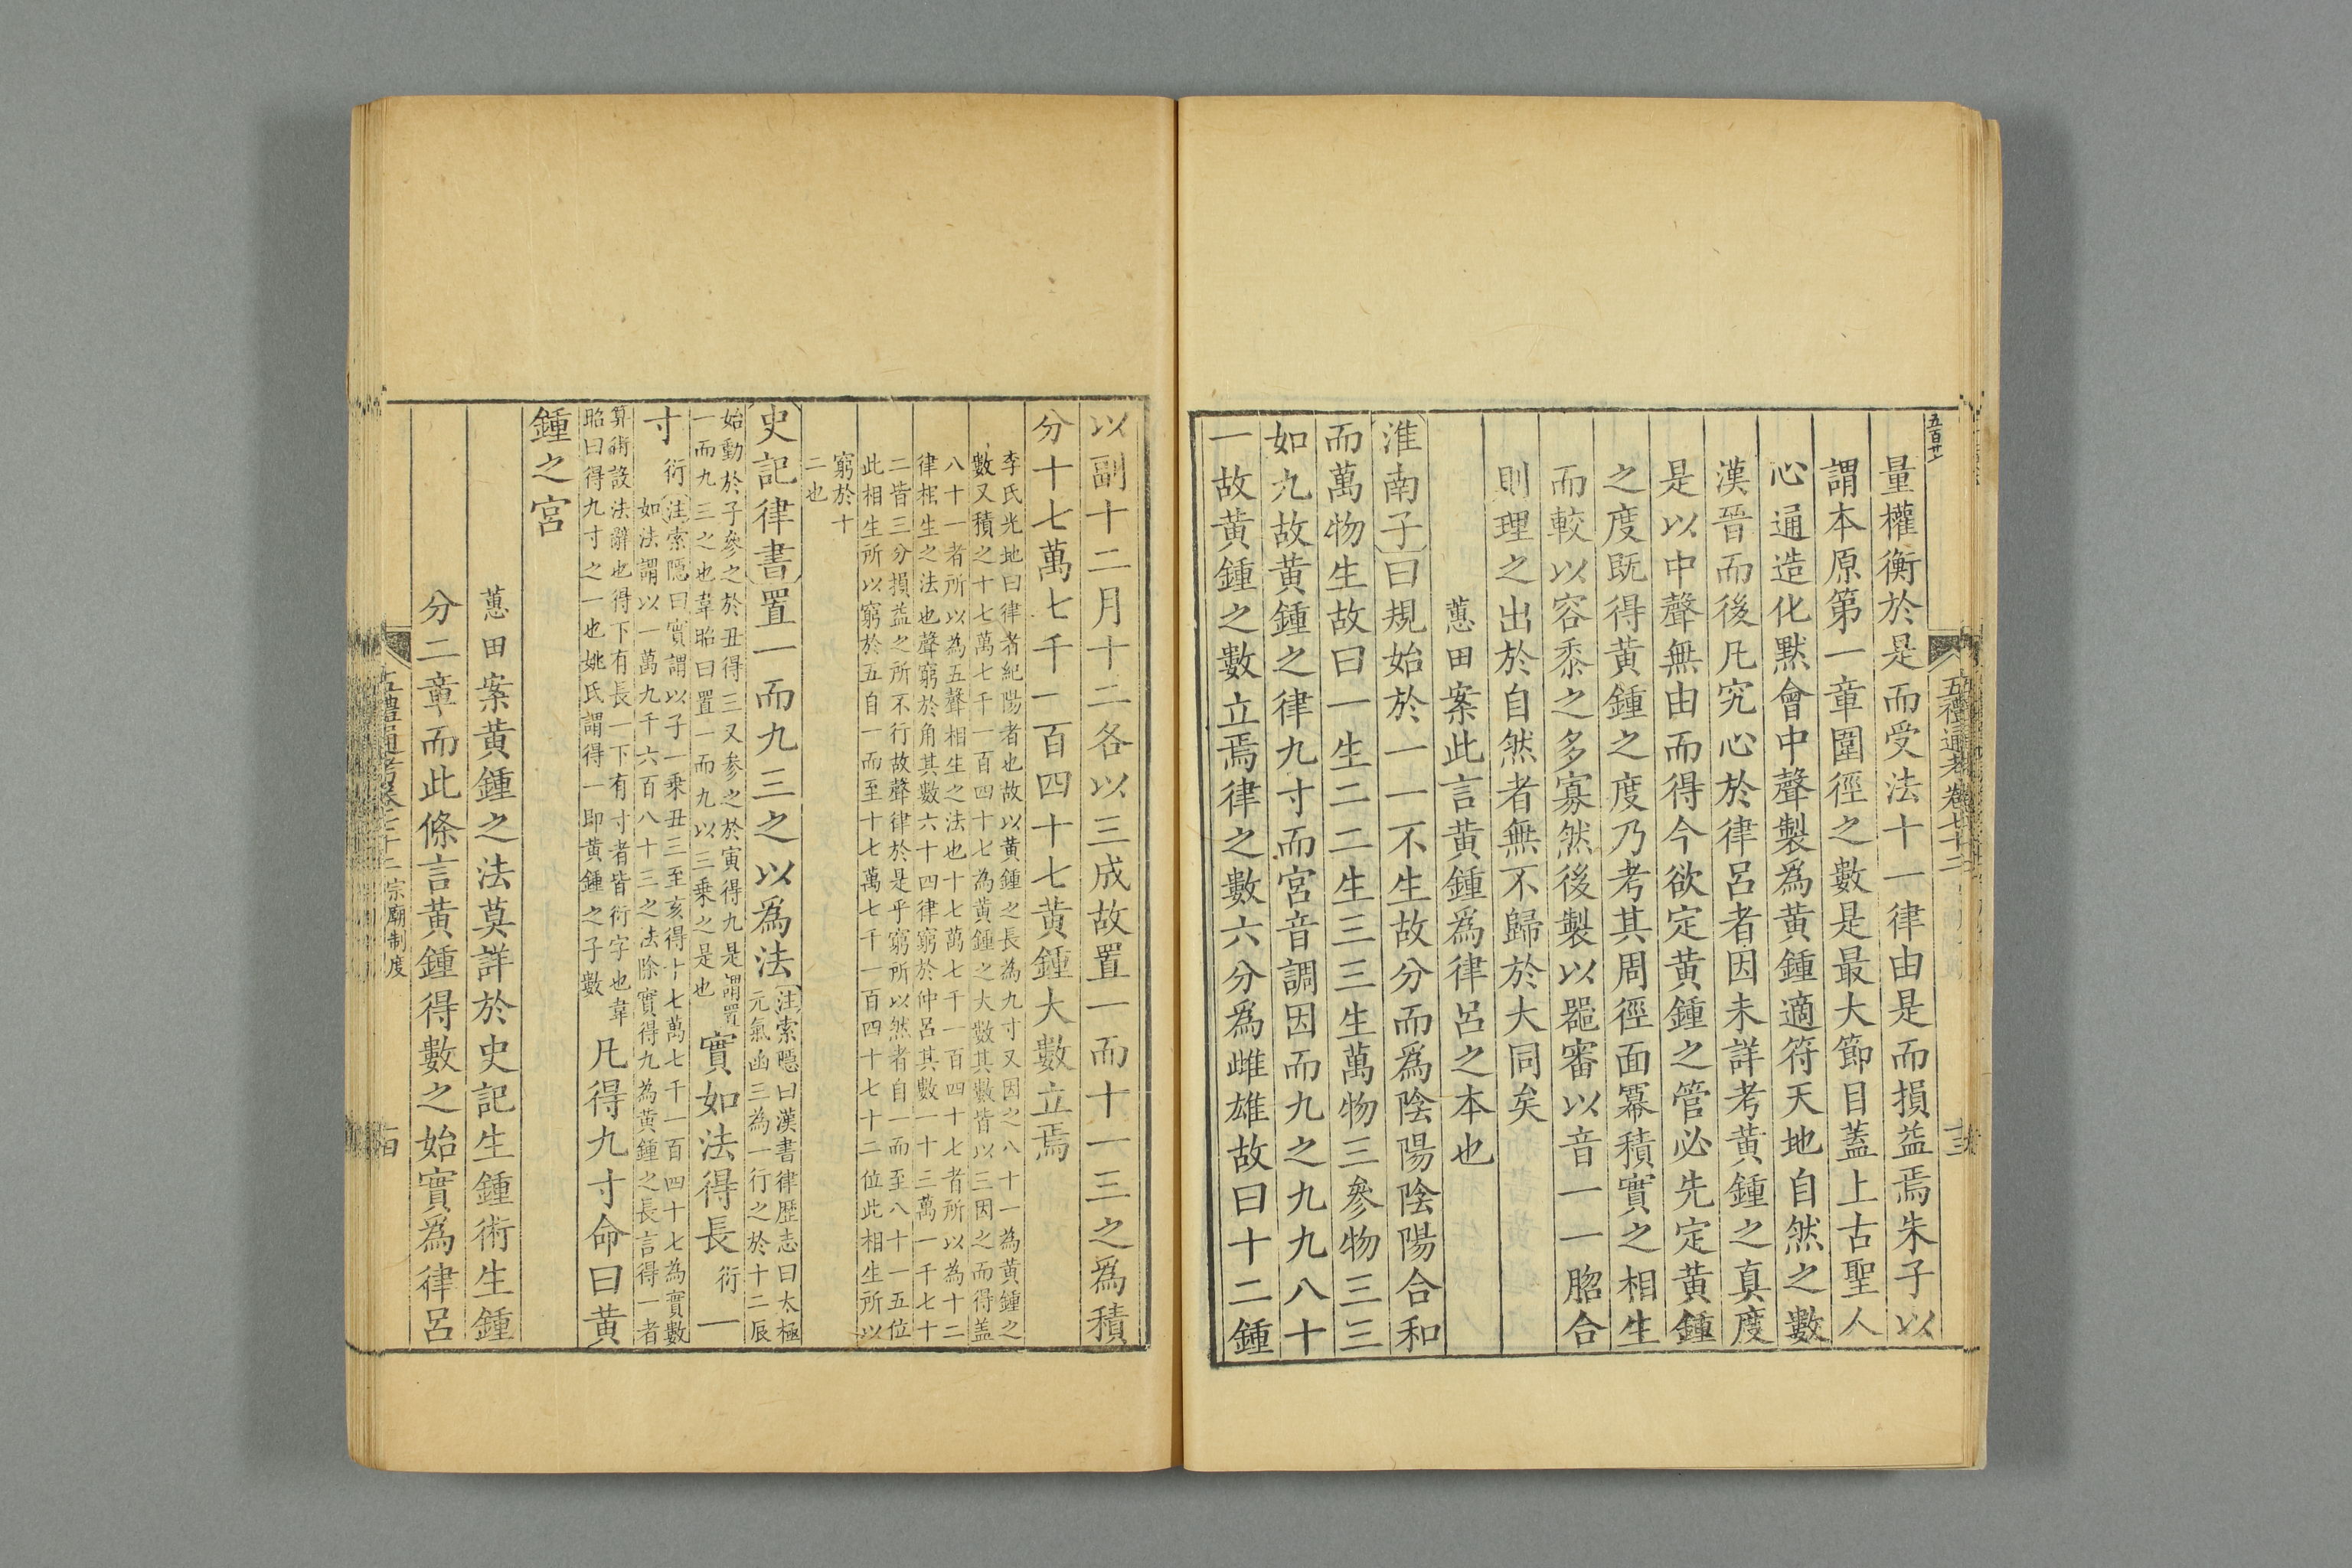 五禮通考卷七十二
量權衡於是而受法十一律由是而損益焉朱子以
謂本原第一章圍徑之數是最大節目蓋上古聖人
心通造化默會中聲製爲黃鍾適符天地自然之數
漢晉而後凡究心於律呂者因未詳考黃鍾之真度
是以中聲無由而得今欲定黃鍾之管必先定黃鍾
之度既得黃鍾之度乃考其周徑面冪積實之相生
而較以容黍之多寡然後製以器審以音一一脗合
則理之出於自然者無不歸於大同矣
蕙田案此言黃鍾爲律呂之本也
淮南子曰規始於一一不生故分而爲陰陽陰陽合和
而萬物生故曰一生二二生三三生萬物三參物三三
如九故黃鍾之律九寸而宮音調因而九之九九八十
一故黃鍾之數立焉律之數六分爲雌雄故曰十二鍾
以副十二月十二各以三成故置一而十一三之爲積
分十七萬七千一百四十七黃鍾大數立焉
李氏光地曰律者紀陽者也故以黃鍾之長為九寸又因之八十一為黃鍾之
數又積之十七萬七千一百四十七為黃鍾之大數其數皆以三因之而得蓋
八十一者所以為五聲相生之法也十七萬七千一百四十七者所以為十二
律相生之法也聲窮於角其數六十四律窮於仲呂其數一十三萬一千七十
二皆三分損益之所不行故聲律於是乎窮所以然者自一而至八十一五位
此相生所以窮於五自一而至十七萬七千一百四十七十二位此相生所以
窮於十
二也
史記律書置一而九三之以爲法
注索隱曰漢書律歷志曰太極
元氣函三為一行之於十二辰
始動於子參之於丑得三又參之於寅得九是謂置
一而九三之也韋昭曰置一而九以三乘之是也
實如法得長衍一
寸衍
注索隱曰實謂以子一乘丑三至亥得十七萬七千一百四十七為實數
如法謂以一萬九千六百八十三之法除實得九為黃鍾之長言得一者
算術設法辭也得下有長一下有寸者皆衍字也韋
昭曰得九寸之一也姚氏謂得一即黃鍾之子數
凡得九寸命曰黃
鍾之宮
蕙田案黃鍾之法莫詳於史記生鍾術生鍾
分二章而此條言黃鍾得數之始實爲律呂
宗廟制度